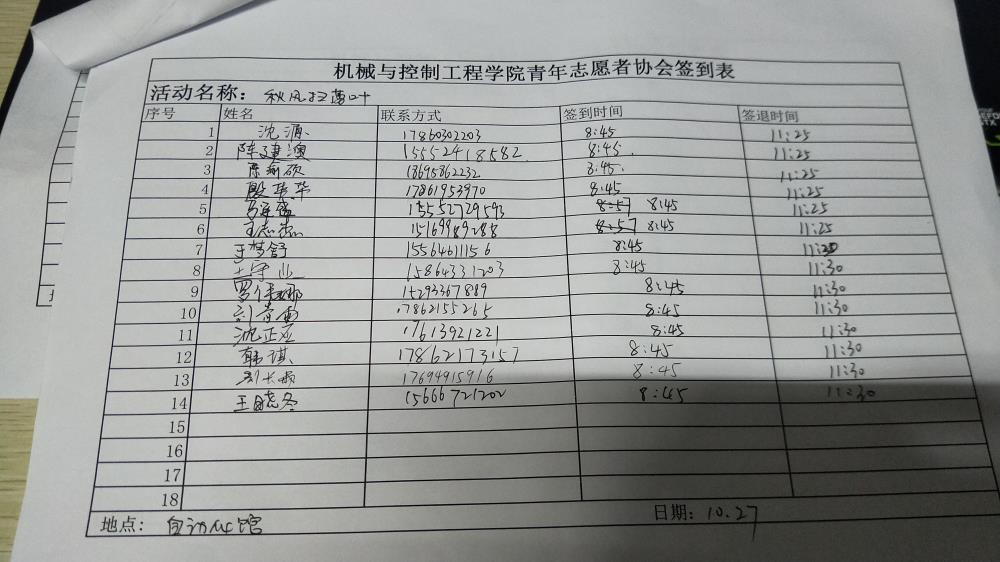 机械与控制工程学院青年志愿者协会签到表
活动名称： 秋风扫落叶
序号 姓名 联系方式 签到时间 签退时间
1 沈源 17860302203 8:45 11:25
2 陈建澳 15552418582 8:45. 11:25
3 陈瑜硕 18695862232 8:45. 11:25
4 殷华华 17861953970 8:45 11:25
5 15552729593 8:57 8:45 11:25
6 王志杰 15169989288 8:57 8:45 11:25
7 于梦舒 15564611156 8:45
8 王守业 15864331203 8:45 11:30
9 15293367889 8:45 11:30
10 17862155265 8:45 11:30
11 沈正应 17613921221 8:45 11:30
12 韩琪 17862173157 8:45 11:30
13 17694915916 8:45 11:30
14 王晓冬 15666721202 8:45 11:30
15
16
17
18
地点： 自动化馆 日期：10.27